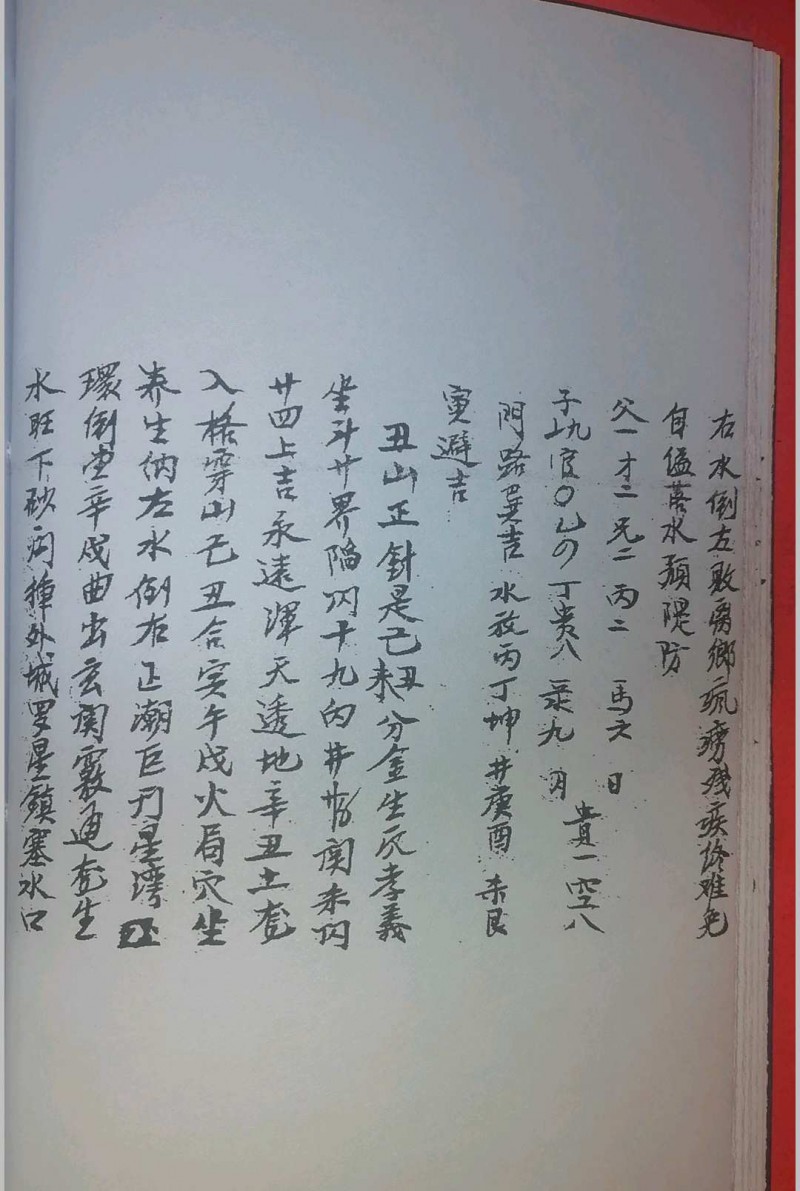 右水倒左敗病鄉瘋癆残疾終难免
自縊落水預隄防
父一才二兄二丙二 馬六 日
子山九官〇乙 丁贵八 录九 闪
貴一空八
門路巽吉 水放丙丁坤井庚酉 未艮
寅避吉
丑山正針是己丑未分金生 孝義
坐斗廿界陷闪十九内井 関未闪
廿四上吉永遠渾天透地辛丑土套
入格穿山己丑合寅午戌火局穴坐
养生纳左水倒右正潮巨门星湾
環倒堂辛戌曲出玄関竅通套生
水旺下砂関 外城罗星鎮塞水口